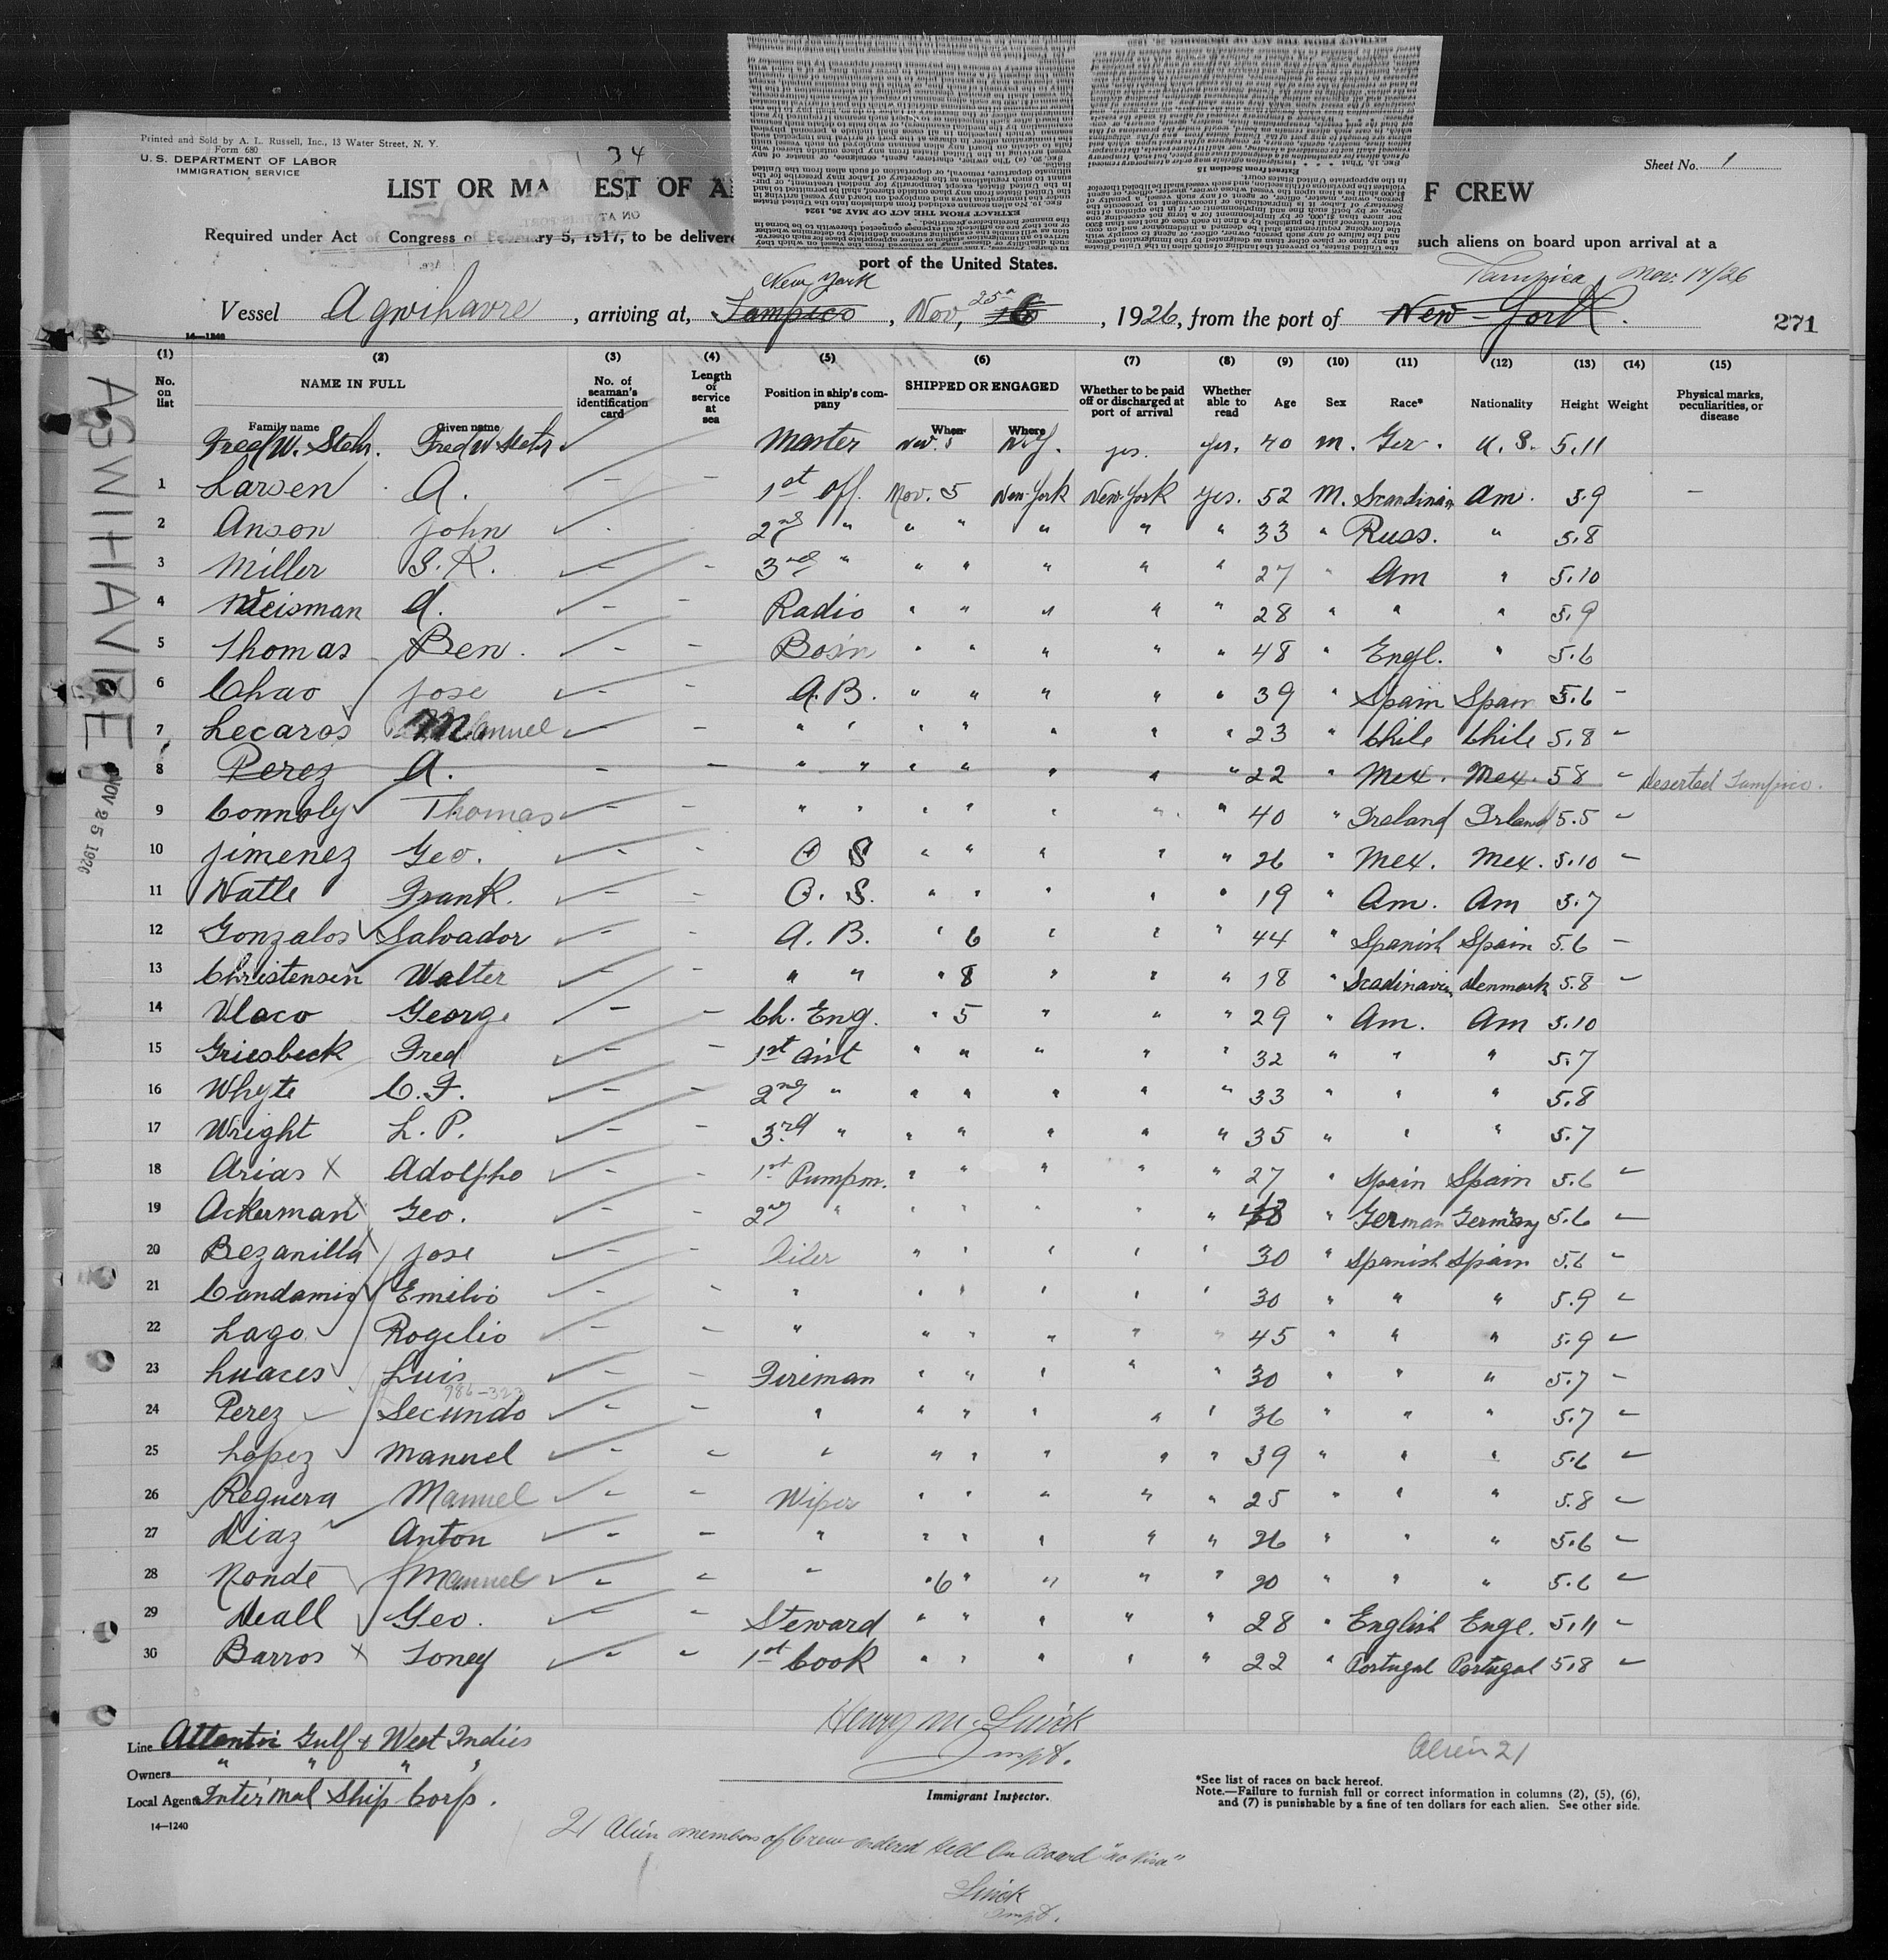 Printed and Sold by A. L. Russell, Inc., 13 Water Street, N. Y.
Form 680
U. S. DEPARTMENT OF LABOR
IMMIGRATION SERVICE
34
Sheet No. 1
LIST OR MA EST OF A F CREW
EXTRACT FROM THE ACT OF MAY 26, 1924
Required under Act of Congress of February 5, 1917, to be delivere such aliens on board upon arrival at a
port of the United States.
New York Tampico, Nov. 17/26
Vessel Agwihavre, arriving at, Tampico, Nov, 25th 16, 1926, from the port of New York.
271
14—1240
(1) (2) (3) (4) (5) (6) (7) (8) (9) (10) (11) (12) (13) (14) (15)
No. on list NAME IN FULL Family name Given name No. of seaman's identification card Length of service at sea Position in ship's company SHIPPED OR ENGAGED When Where Whether to be paid off or discharged at port of arrival Whether able to read Age Sex Race* Nationality Height Weight Physical marks, peculiarities, or disease
Fred W. Stehr. Fred W Stehr Master Nov. 5 N.Y. yes. yes. 40 m. Ger. U. S. 5.11
1 Larsen A. – – 1st off. Nov. 5 New York New York yes. 52 M. Scandinavian Am. 5.9 –
2 Anson John 2nd " " " " " " 33 " Russ. " 5.8
3 Miller S. K. – – 3rd " " " " " " 27 " Am " 5.10
4 Weisman A. – – Radio " " " " " 28 " " " 5.9
5 Thomas Ben. – – Bosn " " " " " 48 " Engl. " 5.6
6 Chao Jose – – A. B. " " " " " 39 " Spain Spain 5.6 –
7 Lecaros Manuel – – " " " " " " " 23 " Chile Chile 5.8 –
8 Perez A. – – " " " " " " " 22 " Mex. Mex. 5 8 – Deserted Tampico.
9 Connoly Thomas – " " " " " " " 40 " Ireland Irland 5.5 –
10 Jimenez Geo. – – O S " " " " " 26 " Mex. Mex. 5.10 –
11 Natle Frank. – – O. S. " " " " " 19 " Am. Am 5.7
12 Gonzalos Salvador – – A. B. " 6 " " " 44 " Spanish Spain 5.6 –
13 Christensen Walter – – " " " 8 " " " 18 " Scadinavin Denmark 5.8 –
14 Vlaco George – – Ch. Eng. " 5 " " " 29 " Am. Am 5.10
15 Griesbeck Fred – – 1st Aist " " " " " 32 " " " 5.7
16 Whyte C. F. – – 2nd " " " " " " 33 " " " 5.8
17 Wright L. P. – – 3rd " " " " " " 35 " " " 5.7
18 Arias X Adolpho – – 1st Pumpm. " " " " " 27 " Spain Spain 5.6 –
19 Ackerman X Geo. – – 2nd " " " " " " " German Germany 5.6 –
20 Bezanilla Jose – – Oiler " " " " " 30 " Spanish Spain 5.6 –
21 Candamio Emilio – – " " " " " " 30 " " " 5.9 –
22 Lago Rogelio – – " " " " " " 45 " " " 5.9 –
23 Luaces Luis – – Fireman " " " " " 30 " " " 5.7 –
986-323
24 Perez Secundo – – " " " " " " 36 " " " 5.7 –
25 Lopez Manuel – – " " " " " " 39 " " " 5.6 –
26 Reguera Manuel – – Wiper " " " " " 25 " " " 5.8 –
27 Diaz Anton – – " " " " " " 26 " " " 5.6 –
28 Ronde Manuel – – " " 6 " " " " 20 " " " 5.6 –
29 Neall Geo. – – Steward " " " " " 28 " English Engl. 5.11 –
30 Barros X Toney – – 1st Cook " " " " " 22 " Portugal Portugal 5.8 –
AGWIHAVRE
NOV 25 1926
Line Atlantic Gulf & West Indies
Owners " " " "
Local Agents Inter'nal Ship Corp.
14—1240
Henry M. Linck
Inspt.
Immigrant Inspector.
Alien 21
*See list of races on back hereof.
Note.—Failure to furnish full or correct information in columns (2), (5), (6),
and (7) is punishable by a fine of ten dollars for each alien. See other side.
21 Alien members of Crew ordered held On Board "no visa"
Linck
Inspt.